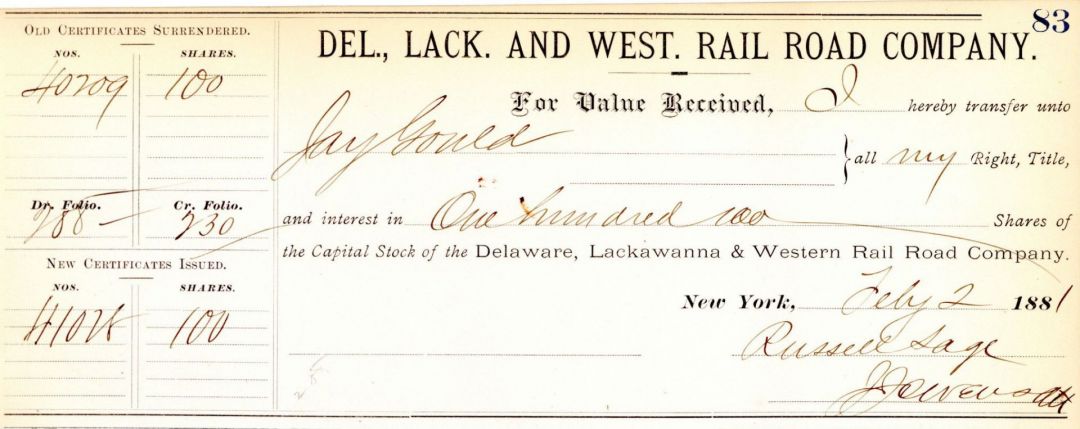 83
OLD CERTIFICATES SURRENDERED.
NOS. SHARES.
40209 100
Dr. Folio. Cr. Folio.
288 – 230
NEW CERTIFICATES ISSUED.
NOS. SHARES.
41028 100
DEL., LACK. AND WEST. RAIL ROAD COMPANY.
For Value Received, I hereby transfer unto
Jay Gould
all my Right, Title,
and interest in One hundred 100 Shares of
the Capital Stock of the Delaware, Lackawanna & Western Rail Road Company.
New York, Feby 2 1881
Russell Sage